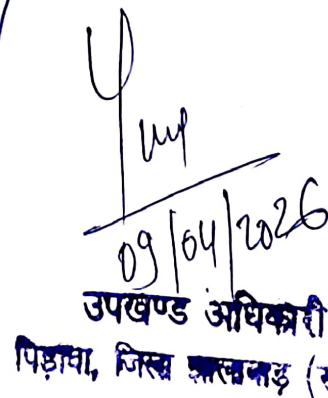 09/04/2026
उपखण्ड अधिकारी
पिड़ावा, जिला झालावाड़ (